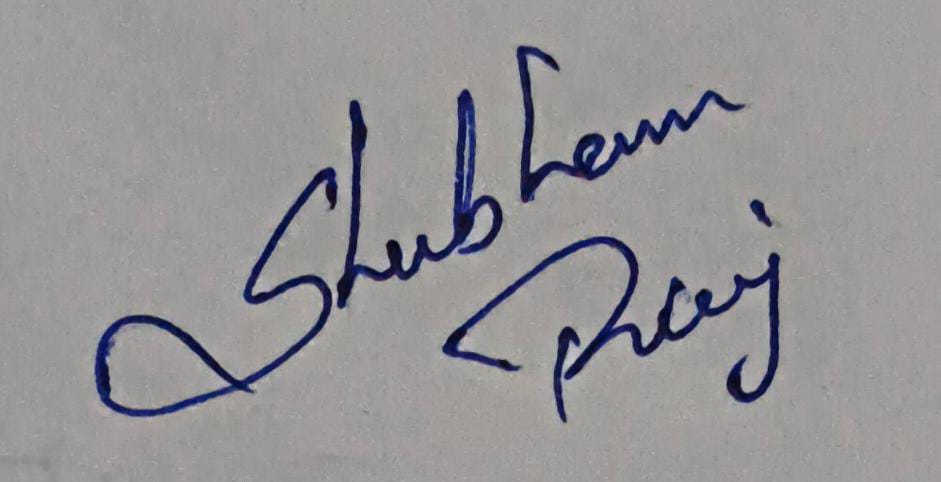 Shubham
Raj